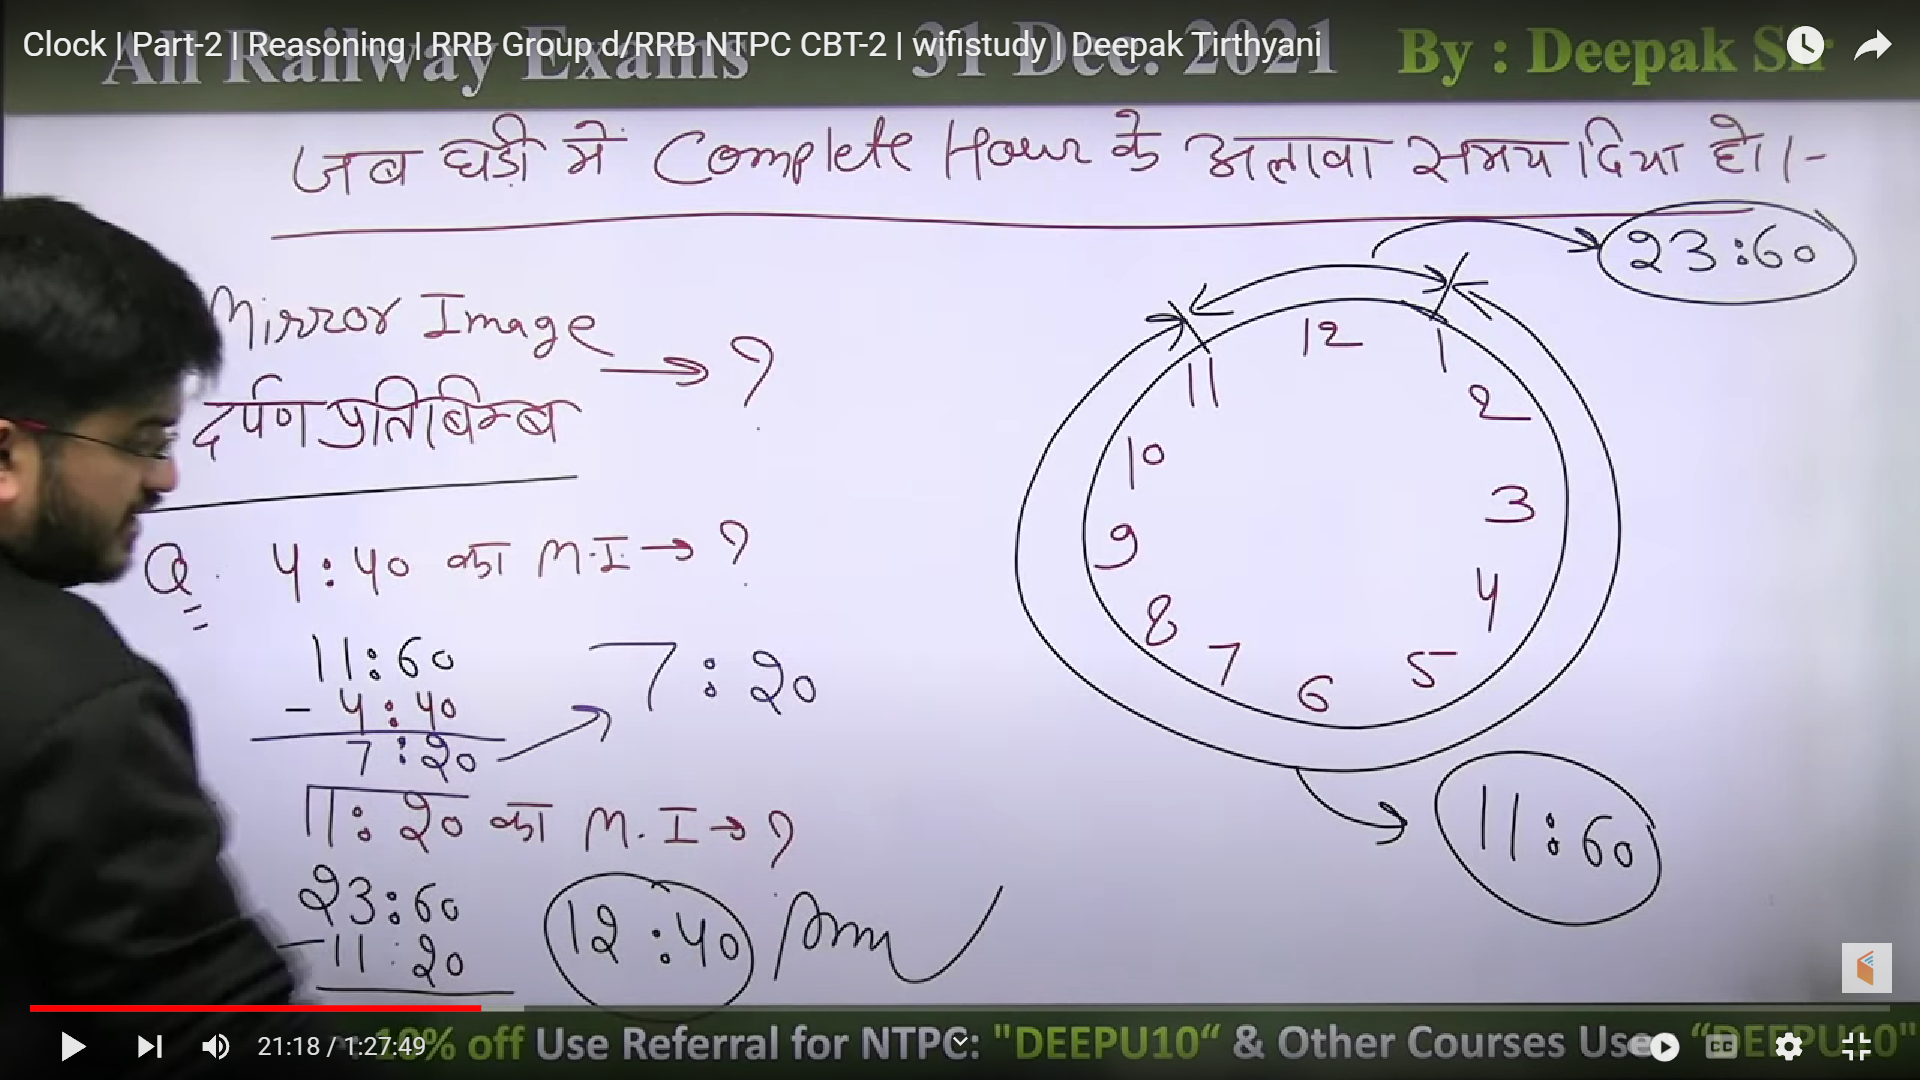 Clock | Part-2 | Reasoning | RRB Group d/RRB NTPC CBT-2 | wifistudy | Deepak Tirthyani
All Railway Exams 31 Dec. 2021 By : Deepak Sir
जब घडी में Complete Hour के अलावा समय दिया हो।-
23:60
Mirror Image → ?
दर्पण प्रतिबिम्ब
12
1
2
3
4
5
6
7
8
9
10
11
Q. 4:40 का M.I. → ?
11:60
- 4:40
7:20
7:20
11:60
11:20 का M.I → ?
23:60
- 11:20
12:40
21:18 / 1:27:49
10% off Use Referral for NTPC: "DEEPU10" & Other Courses Use "DEEPU10"
CC